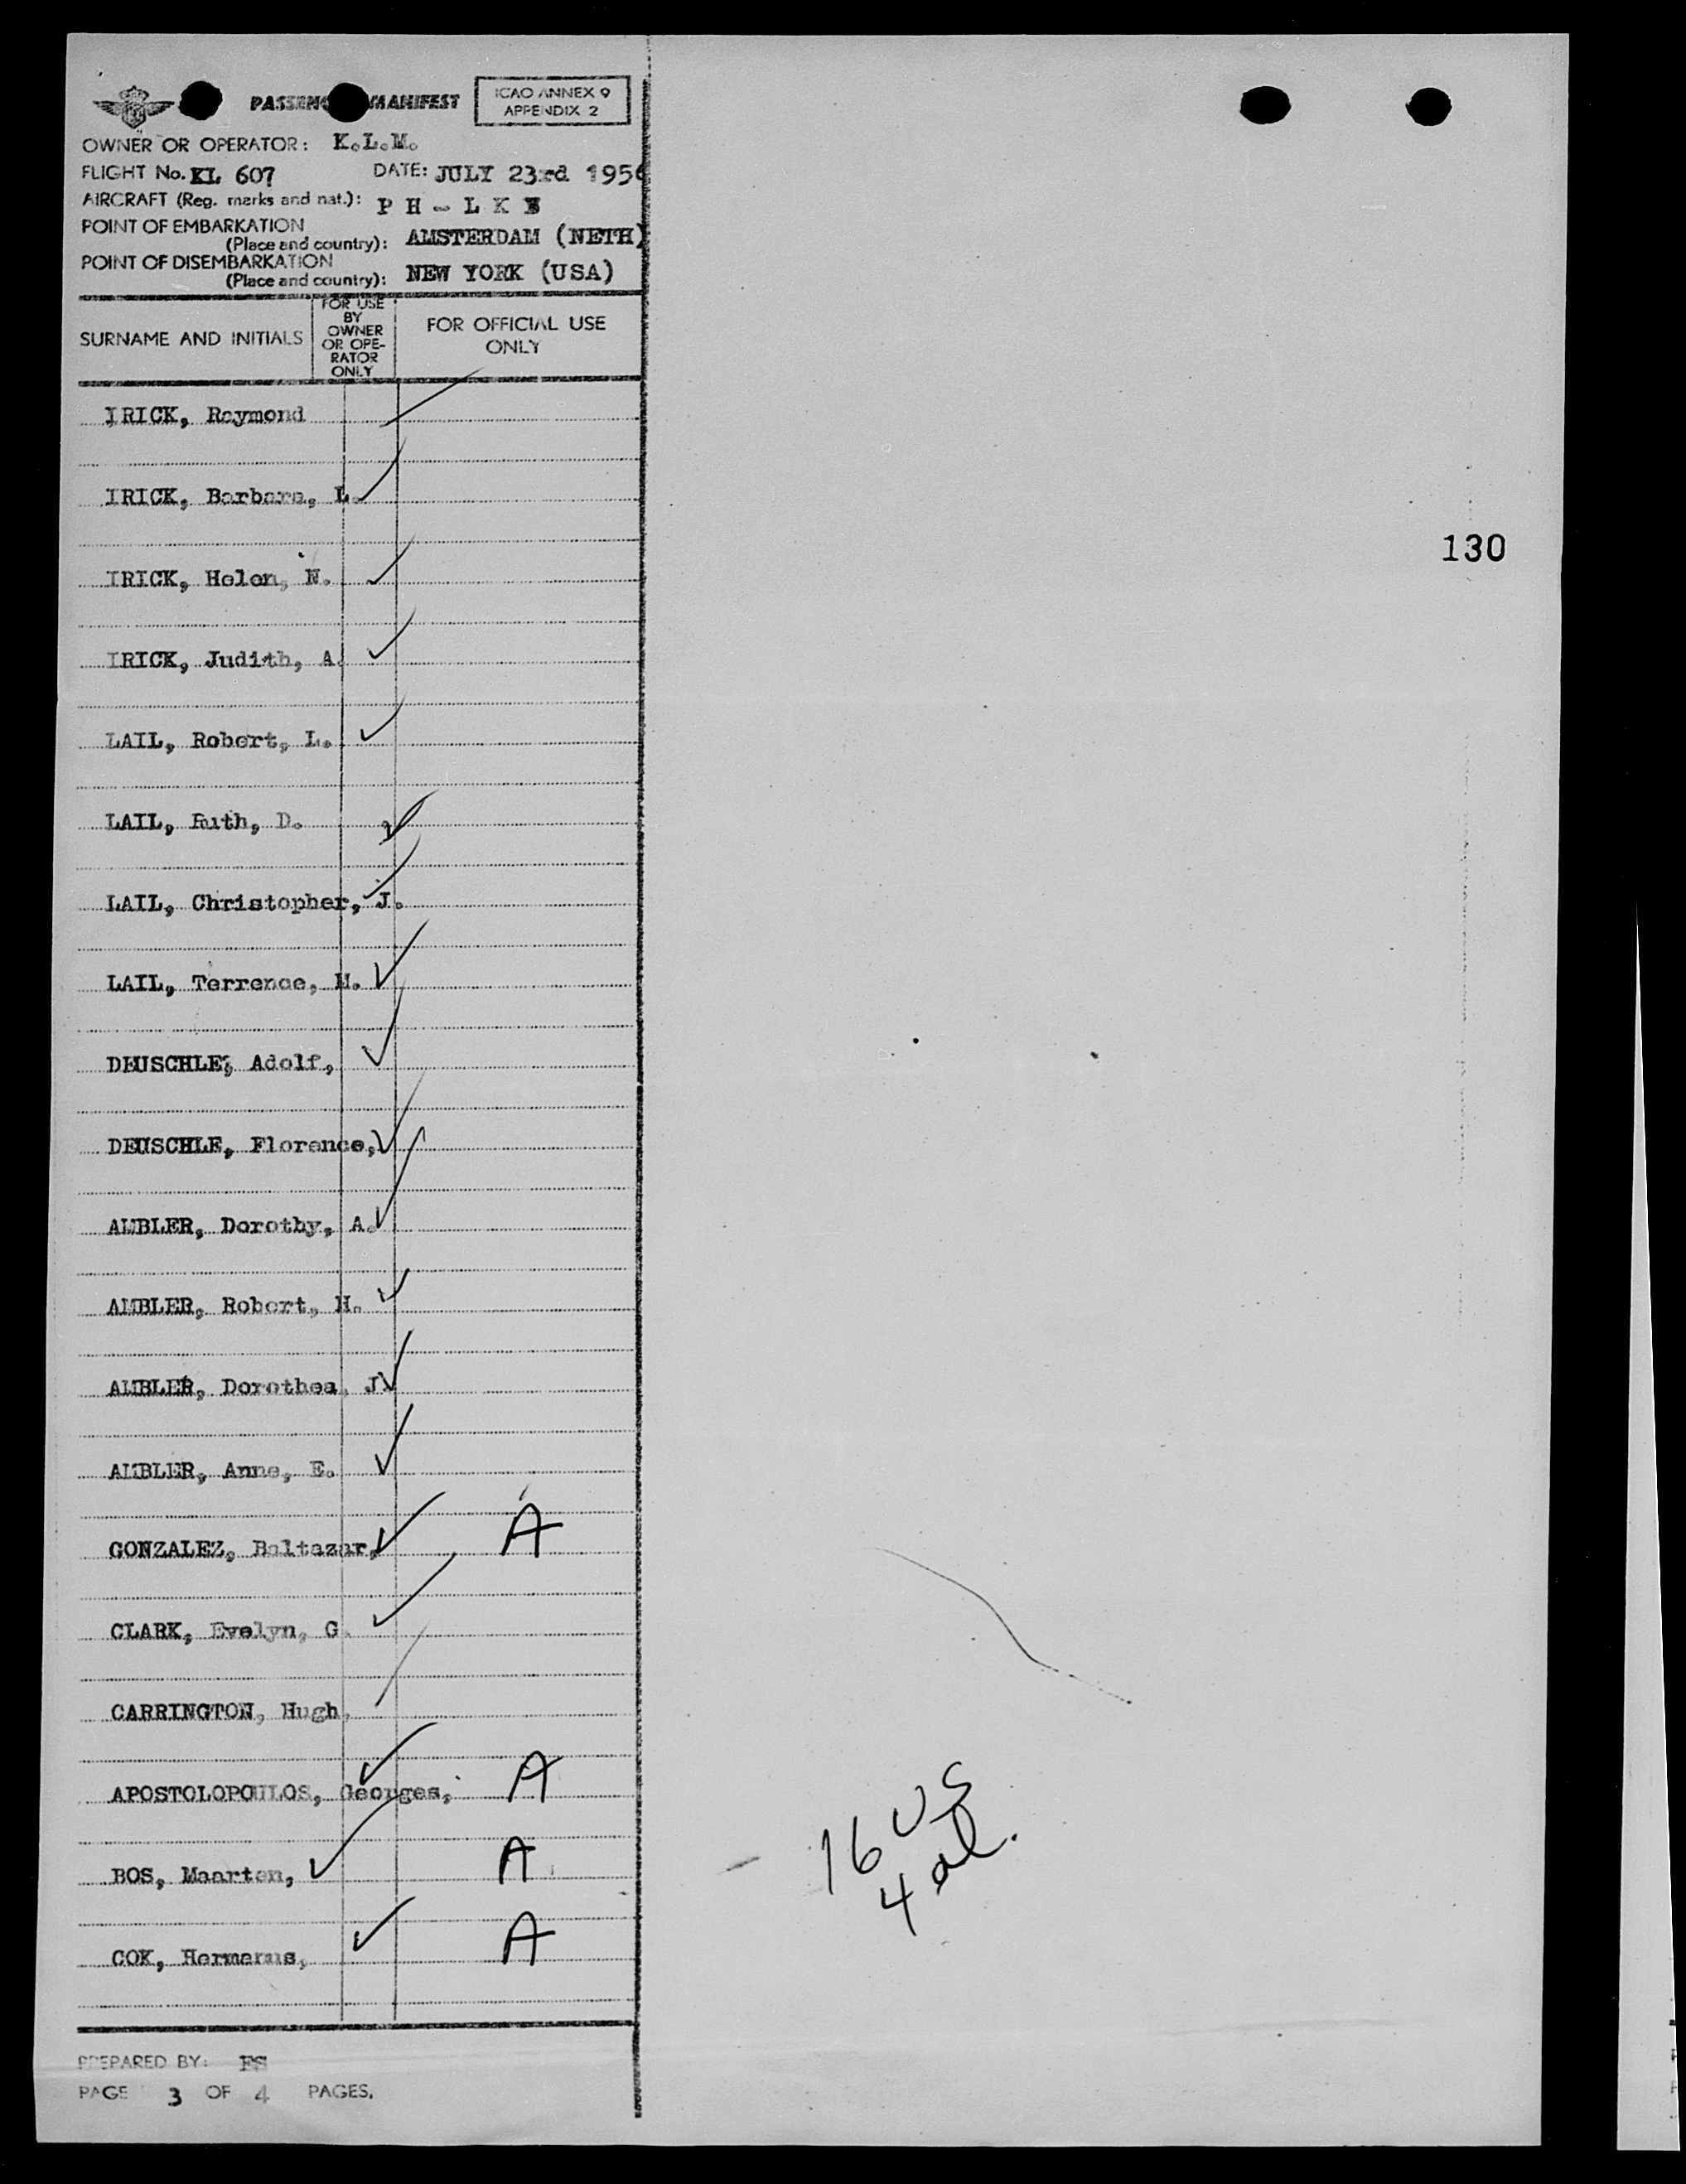 PASSENG MANIFEST
ICAO ANNEX 9
APPENDIX 2
OWNER OR OPERATOR: K.L.M.
FLIGHT No. KL 607 DATE: JULY 23rd 1956
AIRCRAFT (Reg. marks and nat.): P H - L K
POINT OF EMBARKATION
(Place and country): AMSTERDAM (NETH)
POINT OF DISEMBARKATION
(Place and country): NEW YORK (USA)
SURNAME AND INITIALS
FOR USE
BY
OWNER
OR OPE-
RATOR
ONLY
FOR OFFICIAL USE
ONLY
IRICK, Raymond
IRICK, Barbara, L.
130
IRICK, Helen, N.
IRICK, Judith, A.
LAIL, Robert, L.
LAIL, Ruth, D.
LAIL, Christopher, J.
LAIL, Terrence, M.
DEUSCHLE, Adolf,
DEUSCHLE, Florence,
AMBLER, Dorothy, A.
AMBLER, Robert, H.
AMBLER, Dorothea, J.
AMBLER, Anne, E.
GONZALEZ, Baltazar, A
CLARK, Evelyn, G.
CARRINGTON, Hugh,
APOSTOLOPOULOS, Georges, A
BOS, Maarten, A
16 US
4 al.
COK, Hermanus, A
PREPARED BY: FS
PAGE 3 OF 4 PAGES.